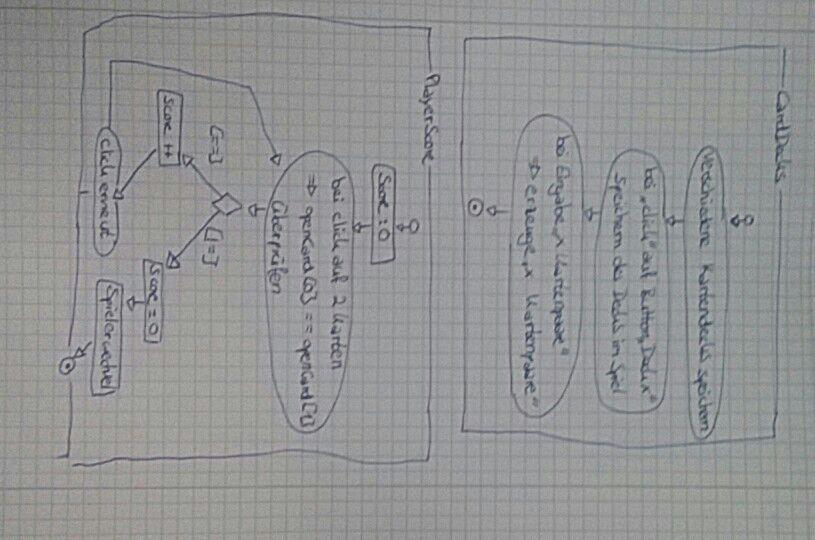 CardDecks
verschiedene Kartendecks speichern
bei „click" auf Button „Deck x"
Speichern des Decks im Spiel
bei Eingabe „x Kartenpaare"
⇒ erzeuge „x Kartenpaare"
PlayerScore
Score : 0
bei click auf 2 Karten
⇒ openCard[0] == openCard[1]
überprüfen
[==]
[!=]
Score ++
Score = 0
click erneut
Spielerwechsel